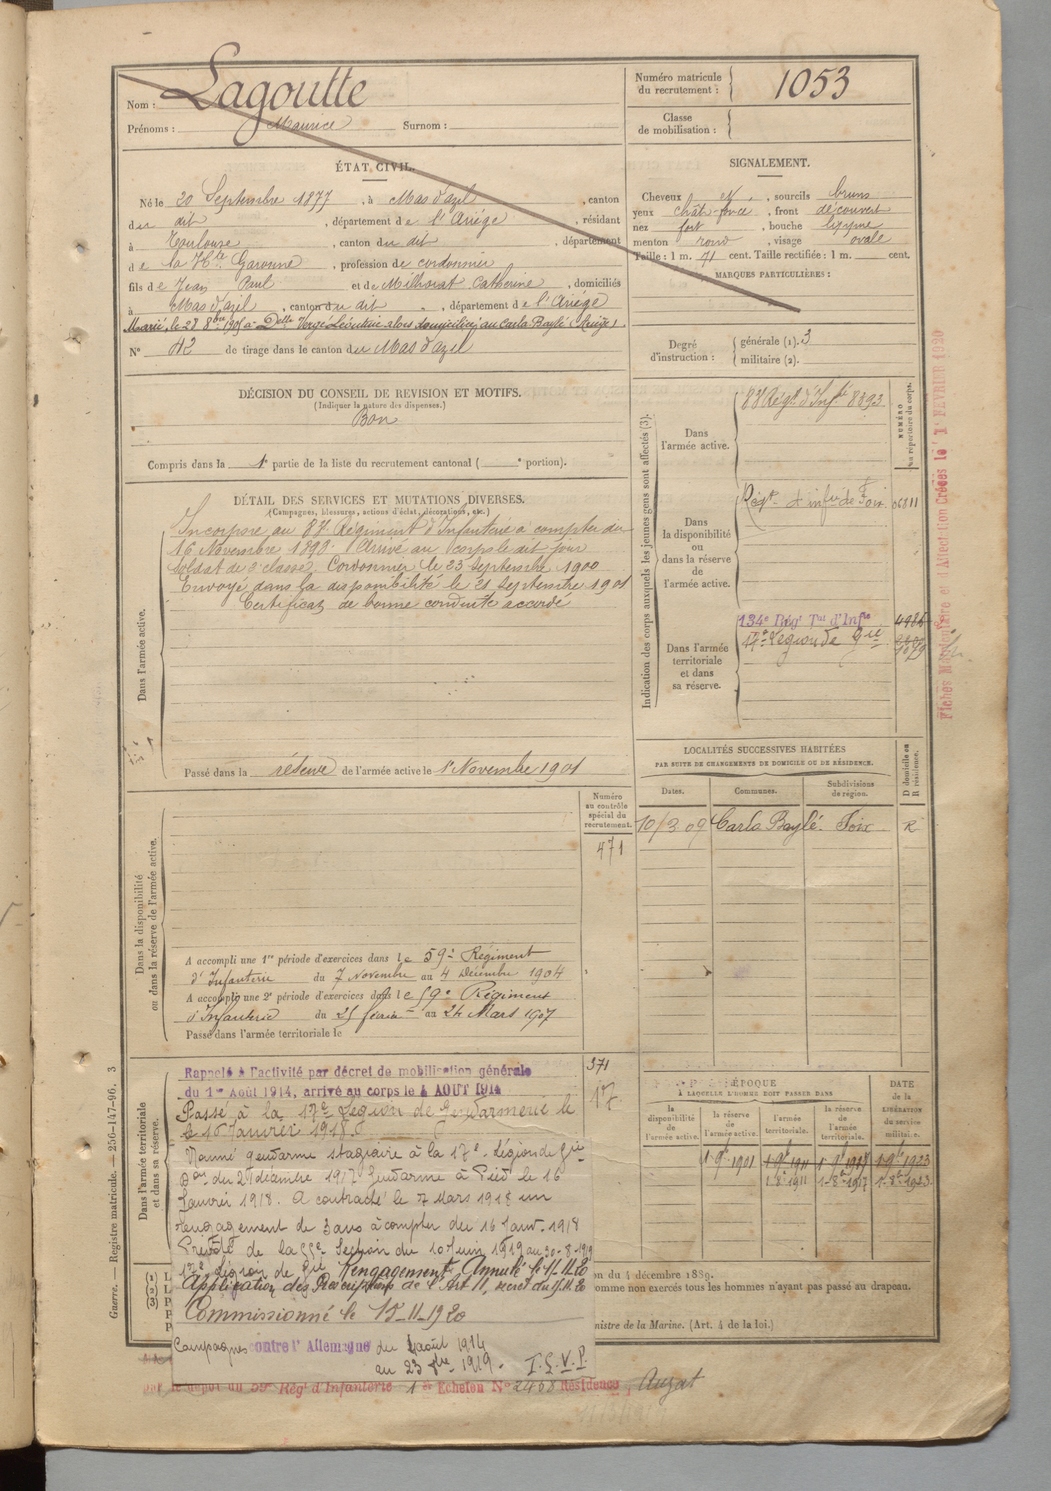 Nom : Lagoutte
Prénoms : Maurice Surnom :
Numéro matricule du recrutement : 1053
Classe de mobilisation :
ÉTAT CIVIL.
Né le 20 Septembre 1877, à Mas d'azil, canton
du dit, département de l'Ariège, résidant
à Toulouse, canton du dit, département
de la Hte Garonne, profession de cordonnier
fils de Jean Paul et de Milhorat Catherine, domiciliés
à Mas d'azil, canton du dit, département de l'Ariège
Marié, le 28 8bre 1905 à Delle Vergé Léontine alors domiciliée au Carla Baylé (Ariège).
N° 42 de tirage dans le canton du Mas d'azil
SIGNALEMENT.
Cheveux N, sourcils bruns
yeux chât. foncé, front découvert
nez fort, bouche moyenne
menton rond, visage ovale
Taille : 1 m. 71 cent. Taille rectifiée : 1 m. cent.
MARQUES PARTICULIÈRES :
Degré d'instruction : générale (1). 3
militaire (2).
DÉCISION DU CONSEIL DE REVISION ET MOTIFS.
(Indiquer la nature des dispenses.)
Bon
Compris dans la 1e partie de la liste du recrutement cantonal ( e portion).
DÉTAIL DES SERVICES ET MUTATIONS DIVERSES.
(Campagnes, blessures, actions d'éclat, décorations, etc.)
Dans l'armée active.
Incorporé au 87 Régiment d'Infanterie à compter du
16 Novembre 1898. Arrivé au corps le dit jour
Soldat de 2e classe. Cordonnier le 23 septembre 1900
Envoyé dans la disponibilité le 21 septembre 1901
Certificat de bonne conduite accordé
Passé dans la réserve de l'armée active le 1er Novembre 1901
Indication des corps auxquels les jeunes gens sont affectés (3).
NUMÉRO au répertoire du corps.
Dans l'armée active.
87 Régt d'Infie 8393
Dans la disponibilité ou dans la réserve de l'armée active.
Régt d'infie de Foix 06811
Dans l'armée territoriale et dans sa réserve.
134e Rég' Tal d'Infie
17e Légion de Gie 1079
Fiches Matriculaire et d'Affectation Créées le 1 FEVRIER 1920
LOCALITÉS SUCCESSIVES HABITÉES
PAR SUITE DE CHANGEMENTS DE DOMICILE OU DE RÉSIDENCE.
D domicile ou R résidence.
Dates. Communes. Subdivisions de région.
10/3 09 Carla Baylé. Foix R
Numéro au contrôle spécial du recrutement.
471
Dans la disponibilité ou dans la réserve de l'armée active.
A accompli une 1re période d'exercices dans le 59e Régiment
d'Infanterie du 7 Novembre au 4 Décembre 1904
A accompli une 2e période d'exercices dans le 59e Régiment
d'Infanterie du 25 février au 24 Mars 1907
Passé dans l'armée territoriale le
371
17
Dans l'armée territoriale et dans sa réserve.
Rappelé à l'activité par décret de mobilisation générale
du 1er Août 1914, arrivé au corps le 4 AOUT 1914
Passé à la 17e Légion de Gendarmerie le
le 16 Janvier 1918
Nommé gendarme stagiaire à la 17e Légion de Gie
Don du 27 décembre 1917 Gendarme à Pied le 16
Janvier 1918. A contracté le 7 Mars 1918 un
rengagement de 3 ans à compter du 16 Janv. 1918
Prévôté de la Section du 10 Juin 1919 au 30-8-1919
17e Légion de Gie Rengagement Annulé le 11-11-20
Application des Prescriptions de l'Art 11, décret du 11.20
Commissionné le 15-11-1920
Campagnes contre l'Allemagne du 4 août 1914
au 23 8bre 1919.
ÉPOQUE
À LAQUELLE L'HOMME DOIT PASSER DANS
DATE de la LIBÉRATION du service militaire.
la disponibilité de l'armée active. la réserve de l'armée active. l'armée territoriale. la réserve de l'armée territoriale.
1 9bre 1901 1 9bre 1911 1 9bre 1917 1 9bre 1923
1-8e-1911 1-8e-1917 1-8e-1923
on du 4 décembre 1889.
omme non exercés tous les hommes n'ayant pas passé au drapeau.
nistre de la Marine. (Art. 4 de la loi.)
par le dépôt du 59e Rég' d'Infanterie 1er Echelon N° 2468 Résidence, Auzat
Guerre. — Registre matricule. — 256-147-96. 3